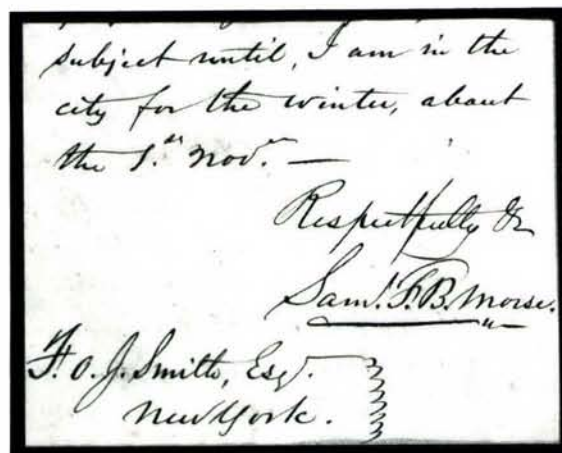 subject until, I am in the
city for the winter, about
the 1.st Nov.r —
Respectfully &
Sam.l F. B. Morse.
F. O. J. Smith, Esq.
New York.